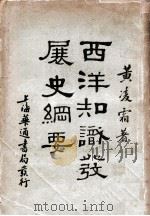 黃凌霜著
西洋知識發
展史綱要
上海華通書局發行